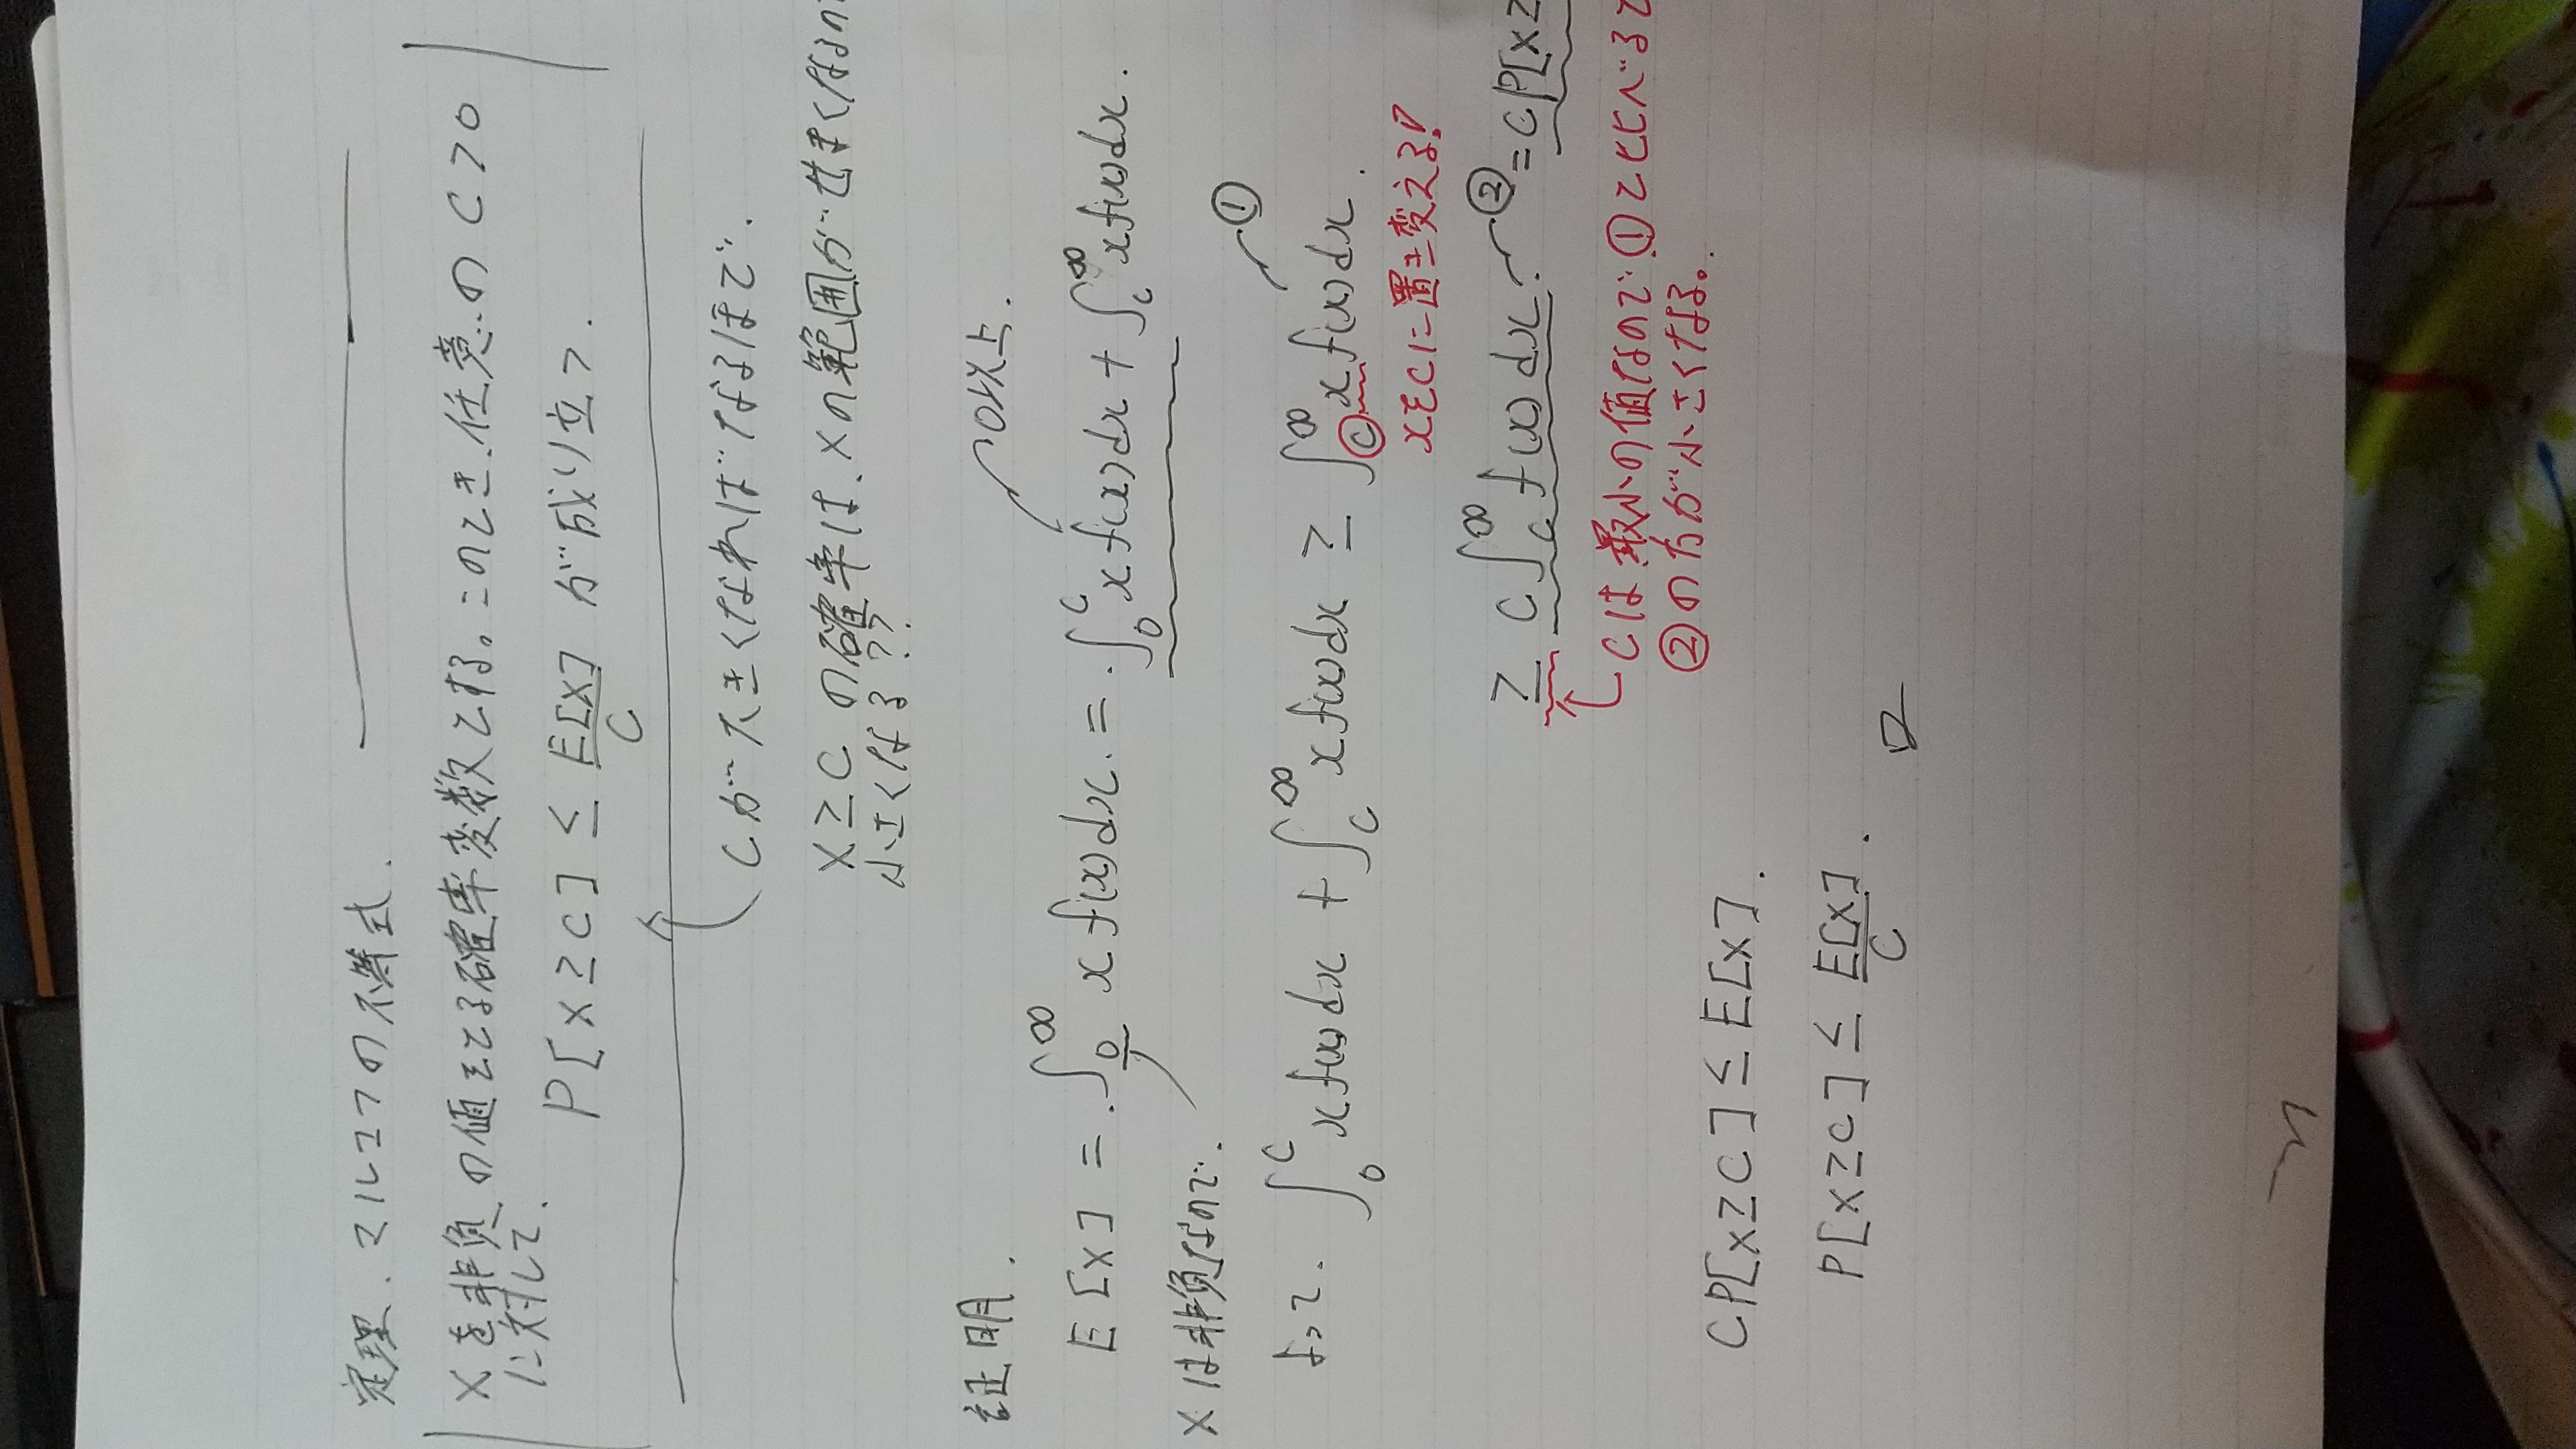 定理. マルコフの不等式.
Xを非負の値をとる確率変数とする。このとき、任意の C>0
に対して、
P[X≥C] ≤ E[X]/C が成り立つ.
Cが大きくなればなるほど、
X≥C の確率は、Xの範囲がせまくなるの
小さくなる??
証明.
0以上.
E[X] = ∫_0^∞ x f(x)dx = ∫_0^c x f(x)dx + ∫_c^∞ x f(x)dx.
Xは非負なので.
①
よって. ∫_0^c x f(x)dx + ∫_c^∞ x f(x)dx ≥ ∫_c^∞ x f(x)dx.
xをcに置き変える!
≥ C∫_c^∞ f(x)dx. ② = CP[X≥
Cは最小の値なので、①と比べると
②の方が小さくなる。
CP[X≥C] ≤ E[X].
P[X≥C] ≤ E[X]/C.